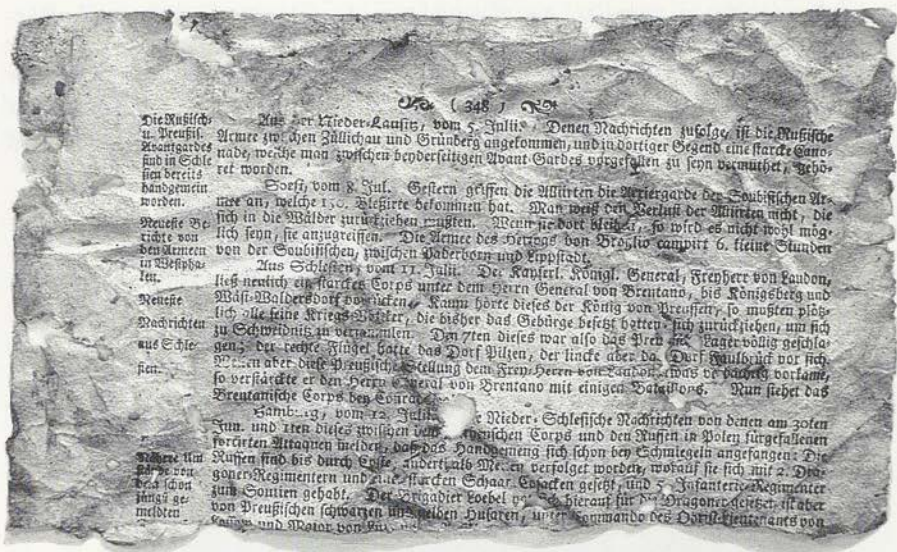 ( 348 )
Die Rußisch-
u. Preußis.
Avantgardes
sind in Schle
sien bereits
handgemein
worden.
Aus der Nieder-Lausitz, vom 5. Julii. Denen Nachrichten zufolge, ist die Rußische
Armee zwischen Züllichau und Grünberg angekommen, und in dortiger Gegend eine starcke Cano-
nade, welche man zwischen beyderseitigen Avant Gardes vorgefallen zu seyn vermuthet, gehö-
ret worden.
Neueste Be
richte von
den Armeen
in Westpha-
len.
Soest, vom 8. Jul. Gestern griffen die Alliirten die Arriergarde der Soubisischen Ar-
mee an, welche 150. Bleßirte bekommen hat. Man weiß den Verlust der Alliirten nicht, die
sich in die Wälder zurückziehen mußten. Wenn sie dort bleiben, so wird es nicht wohl mög-
lich seyn, sie anzugreiffen. Die Armee des Hertzogs von Broglio campirt 6. kleine Stunden
von der Soubisischen, zwischen Paderborn und Lippstadt.
Neueste
Nachrichten
aus Schle-
sien.
Aus Schlesien, vom 11. Julii. Der Kayserl. Königl. General, Freyherr von Laudon,
ließ neulich ein starckes Corps unter dem Herrn General von Brentano, bis Königsberg und
Wüst-Waldersdorf vorrücken. Kaum hörte dieses der König von Preussen, so mußten plötz-
lich alle seine Kriegs-Völker, die bisher das Gebürge besetzt hatten, sich zurückziehen, um sich
zu Schweidnitz zu versammlen. Den 7ten dieses war also das Lager völlig geschla-
gen; der rechte Flügel hatte das Dorf Pilzen, der lincke aber das Dorf Faulbrück vor sich.
Weilen aber diese Preußische Stellung dem Frey-Herrn von Laudon etwas verdächtig vorkame,
so verstärckte er den Herrn General von Brentano mit einigen Bataillons. Nun stehet das
Brentanische Corps bey
Nähere Um
stände von
dem schon
jüngst ge-
meldten
Hamburg, vom 12. Julii. Nieder-Schlesische Nachrichten von denen am 30ten
Jun. und 1ten dieses zwischen dem Corps und den Russen in Polen fürgefallenen
forcirten Attaquen melden, daß das Handgemeng sich schon bey Schmiegeln angefangen: Die
Russen sind bis durch Coste, anderthalb Meilen verfolget worden, worauf sie sich mit 2. Dra-
goner-Regimentern und einer starcken Schaar Cosacken gesetzt, und 5. Infanterie-Regimenter
zum Soutien gehabt. Der Brigadier Loebel hierauf für die Dragoner gesetzet, ist aber
von Preußischen schwarzen und gelben Husaren, unter Commando des Obrist-Lieutenants von
und Major von